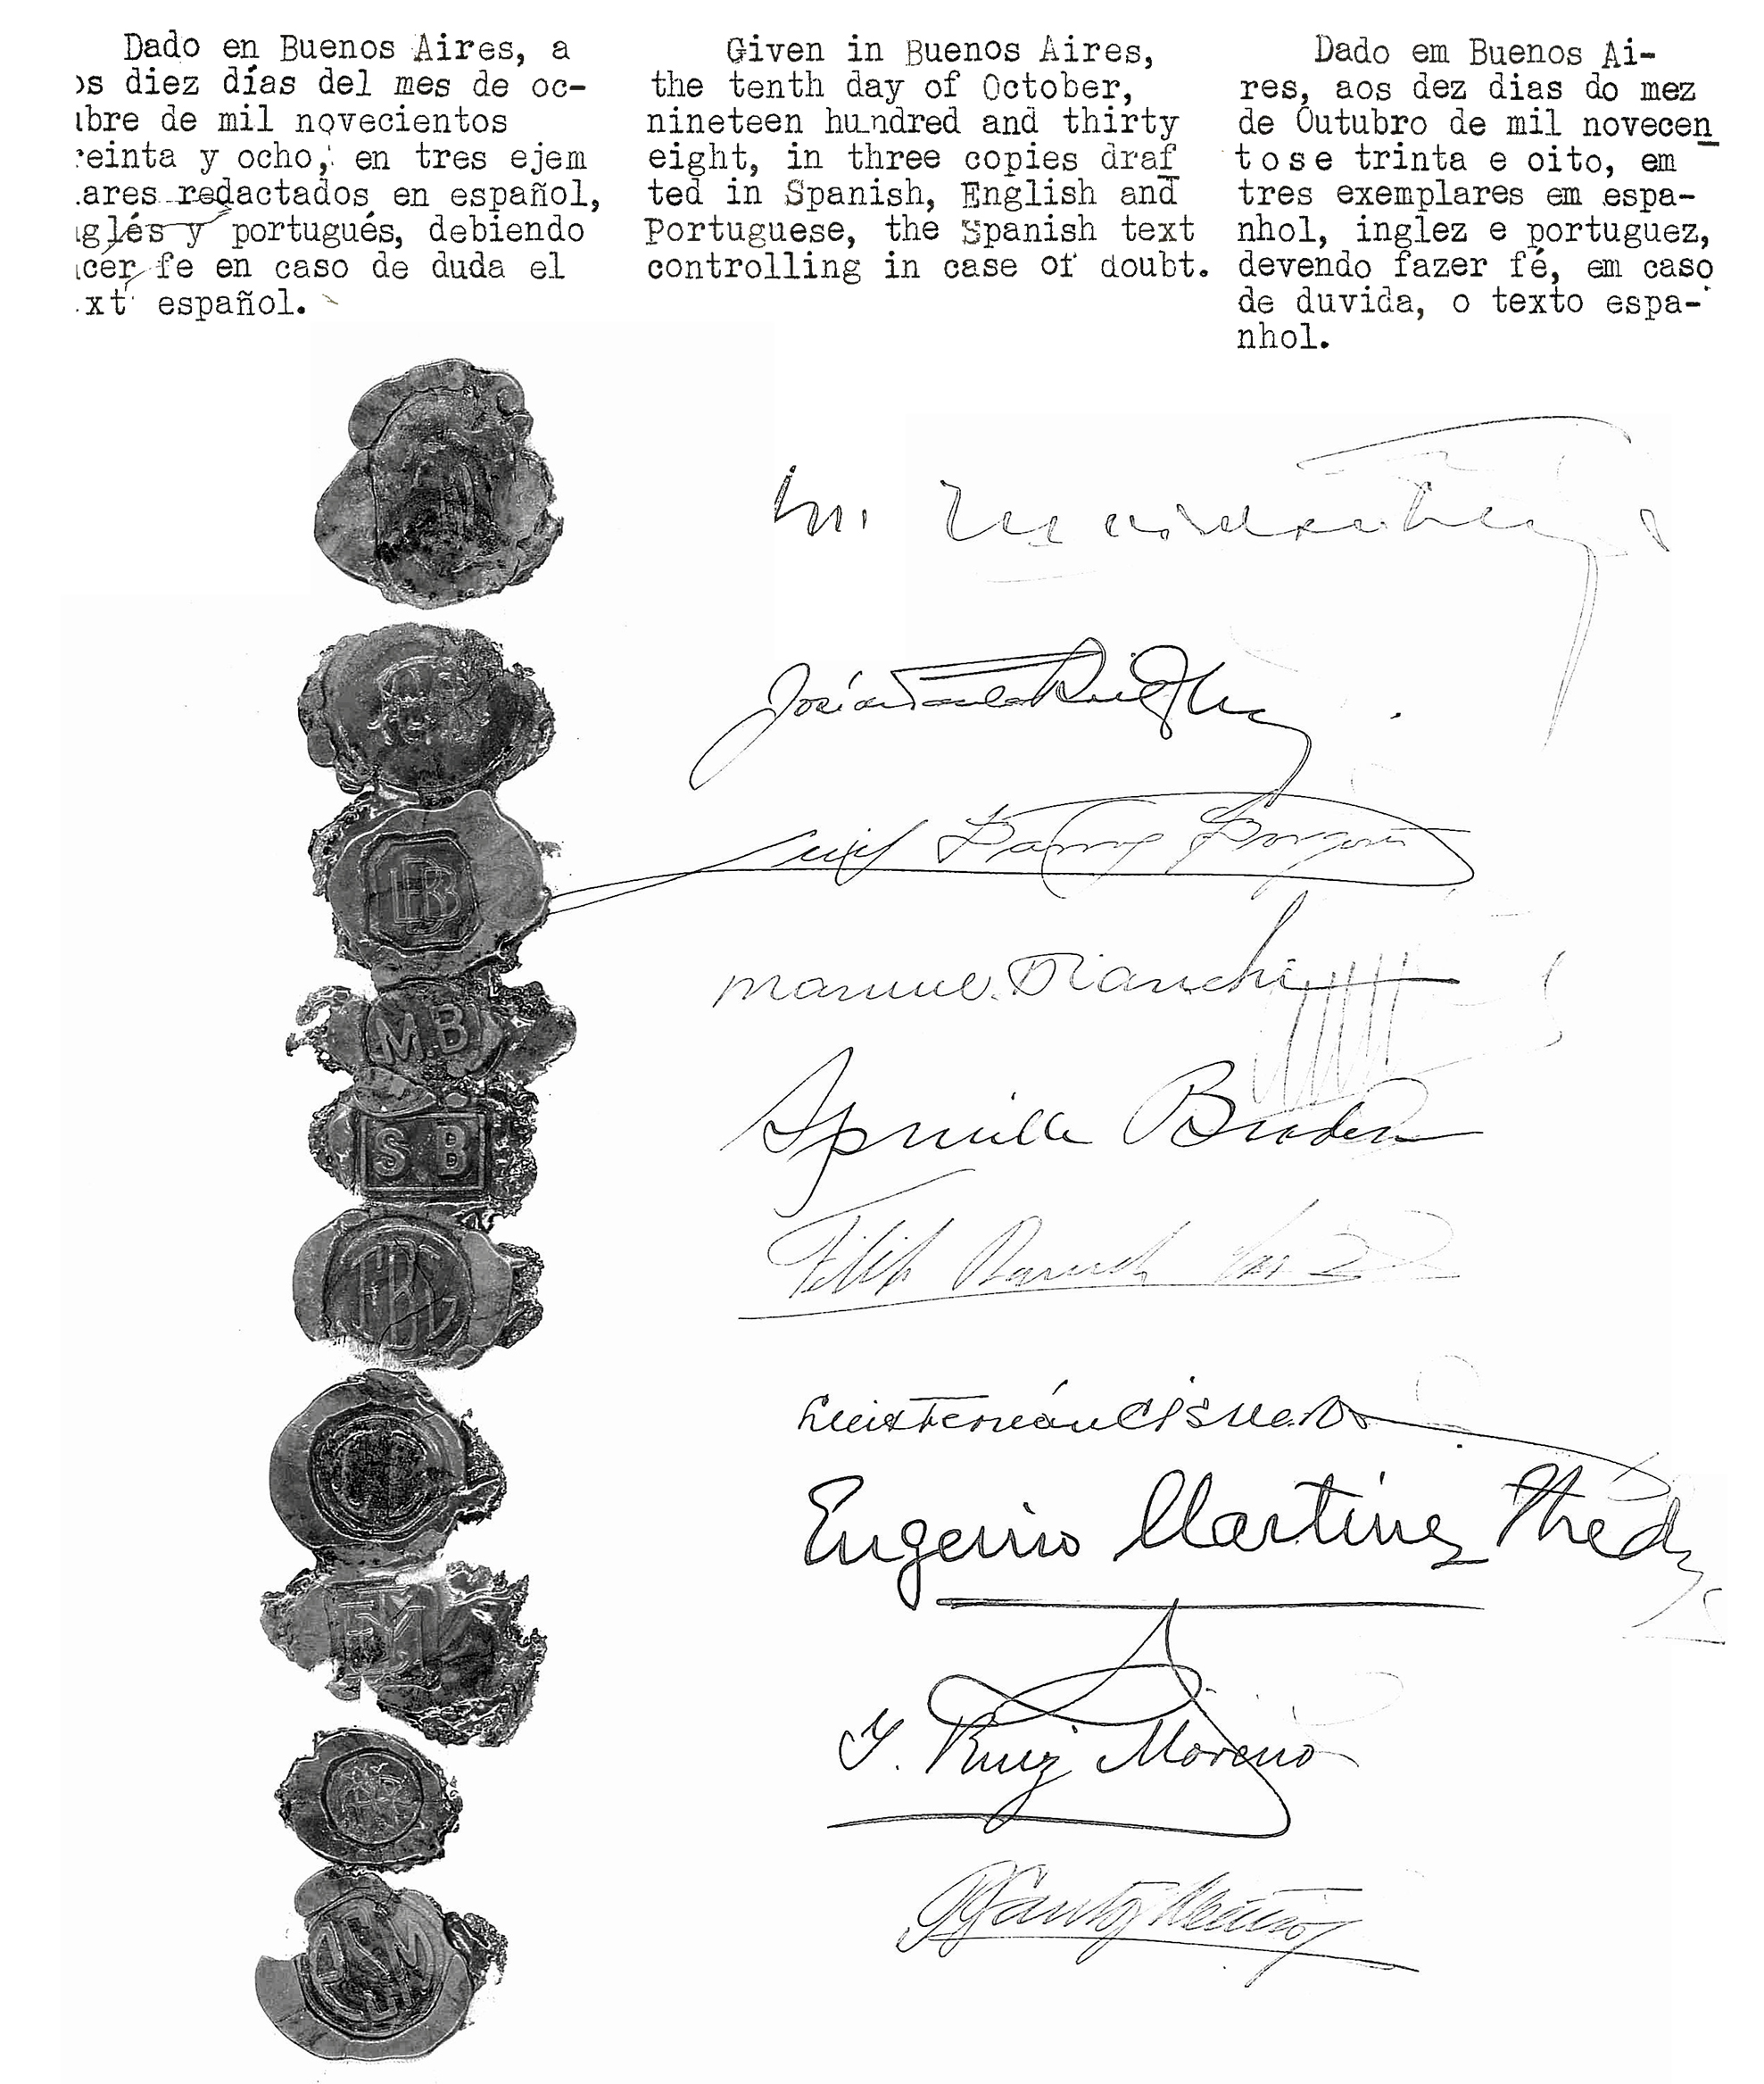 Dado en Buenos Aires, a
os diez días del mes de oc-
ubre de mil novecientos
reinta y ocho, en tres ejem
ares redactados en español,
glés y portugués, debiendo
acer fe en caso de duda el
ext español.
Given in Buenos Aires,
the tenth day of October,
nineteen hundred and thirty
eight, in three copies draf
ted in Spanish, English and
Portuguese, the Spanish text
controlling in case of doubt.
Dado em Buenos Ai-
res, aos dez dias do mez
de Outubro de mil novecen
tose trinta e oito, em
tres exemplares em espa-
nhol, inglez e portuguez,
devendo fazer fé, em caso
de duvida, o texto espa-
nhol.
José de Paula Rodrigues Alves
Luis Barros Borgoño
BB
Manuel Bianchi
M.B
Spruille Braden
S B
Felipe Barreda Laos
FBL
Luis Fernán Cisneros
Eugenio Martínez Thedy
EM
I. Ruiz Moreno
P. Santos Muñoz
PSM